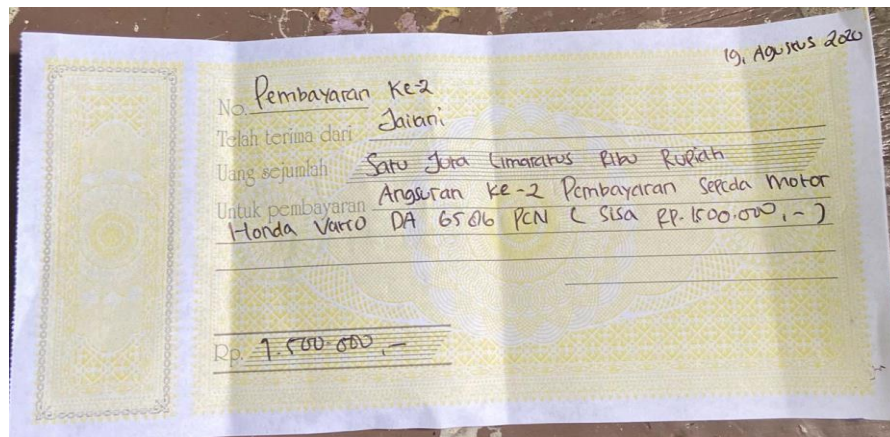 19, Agustus 2020
No. Pembayaran Ke-2
Telah terima dari Jaiani
Uang sejumlah Satu Juta Limaratus Ribu Rupiah
Untuk pembayaran Angsuran Ke-2 Pembayaran Sepeda Motor
Honda Vario DA 6506 PCN ( Sisa RP. 1500.000,-)
Rp. 1.500.000,-